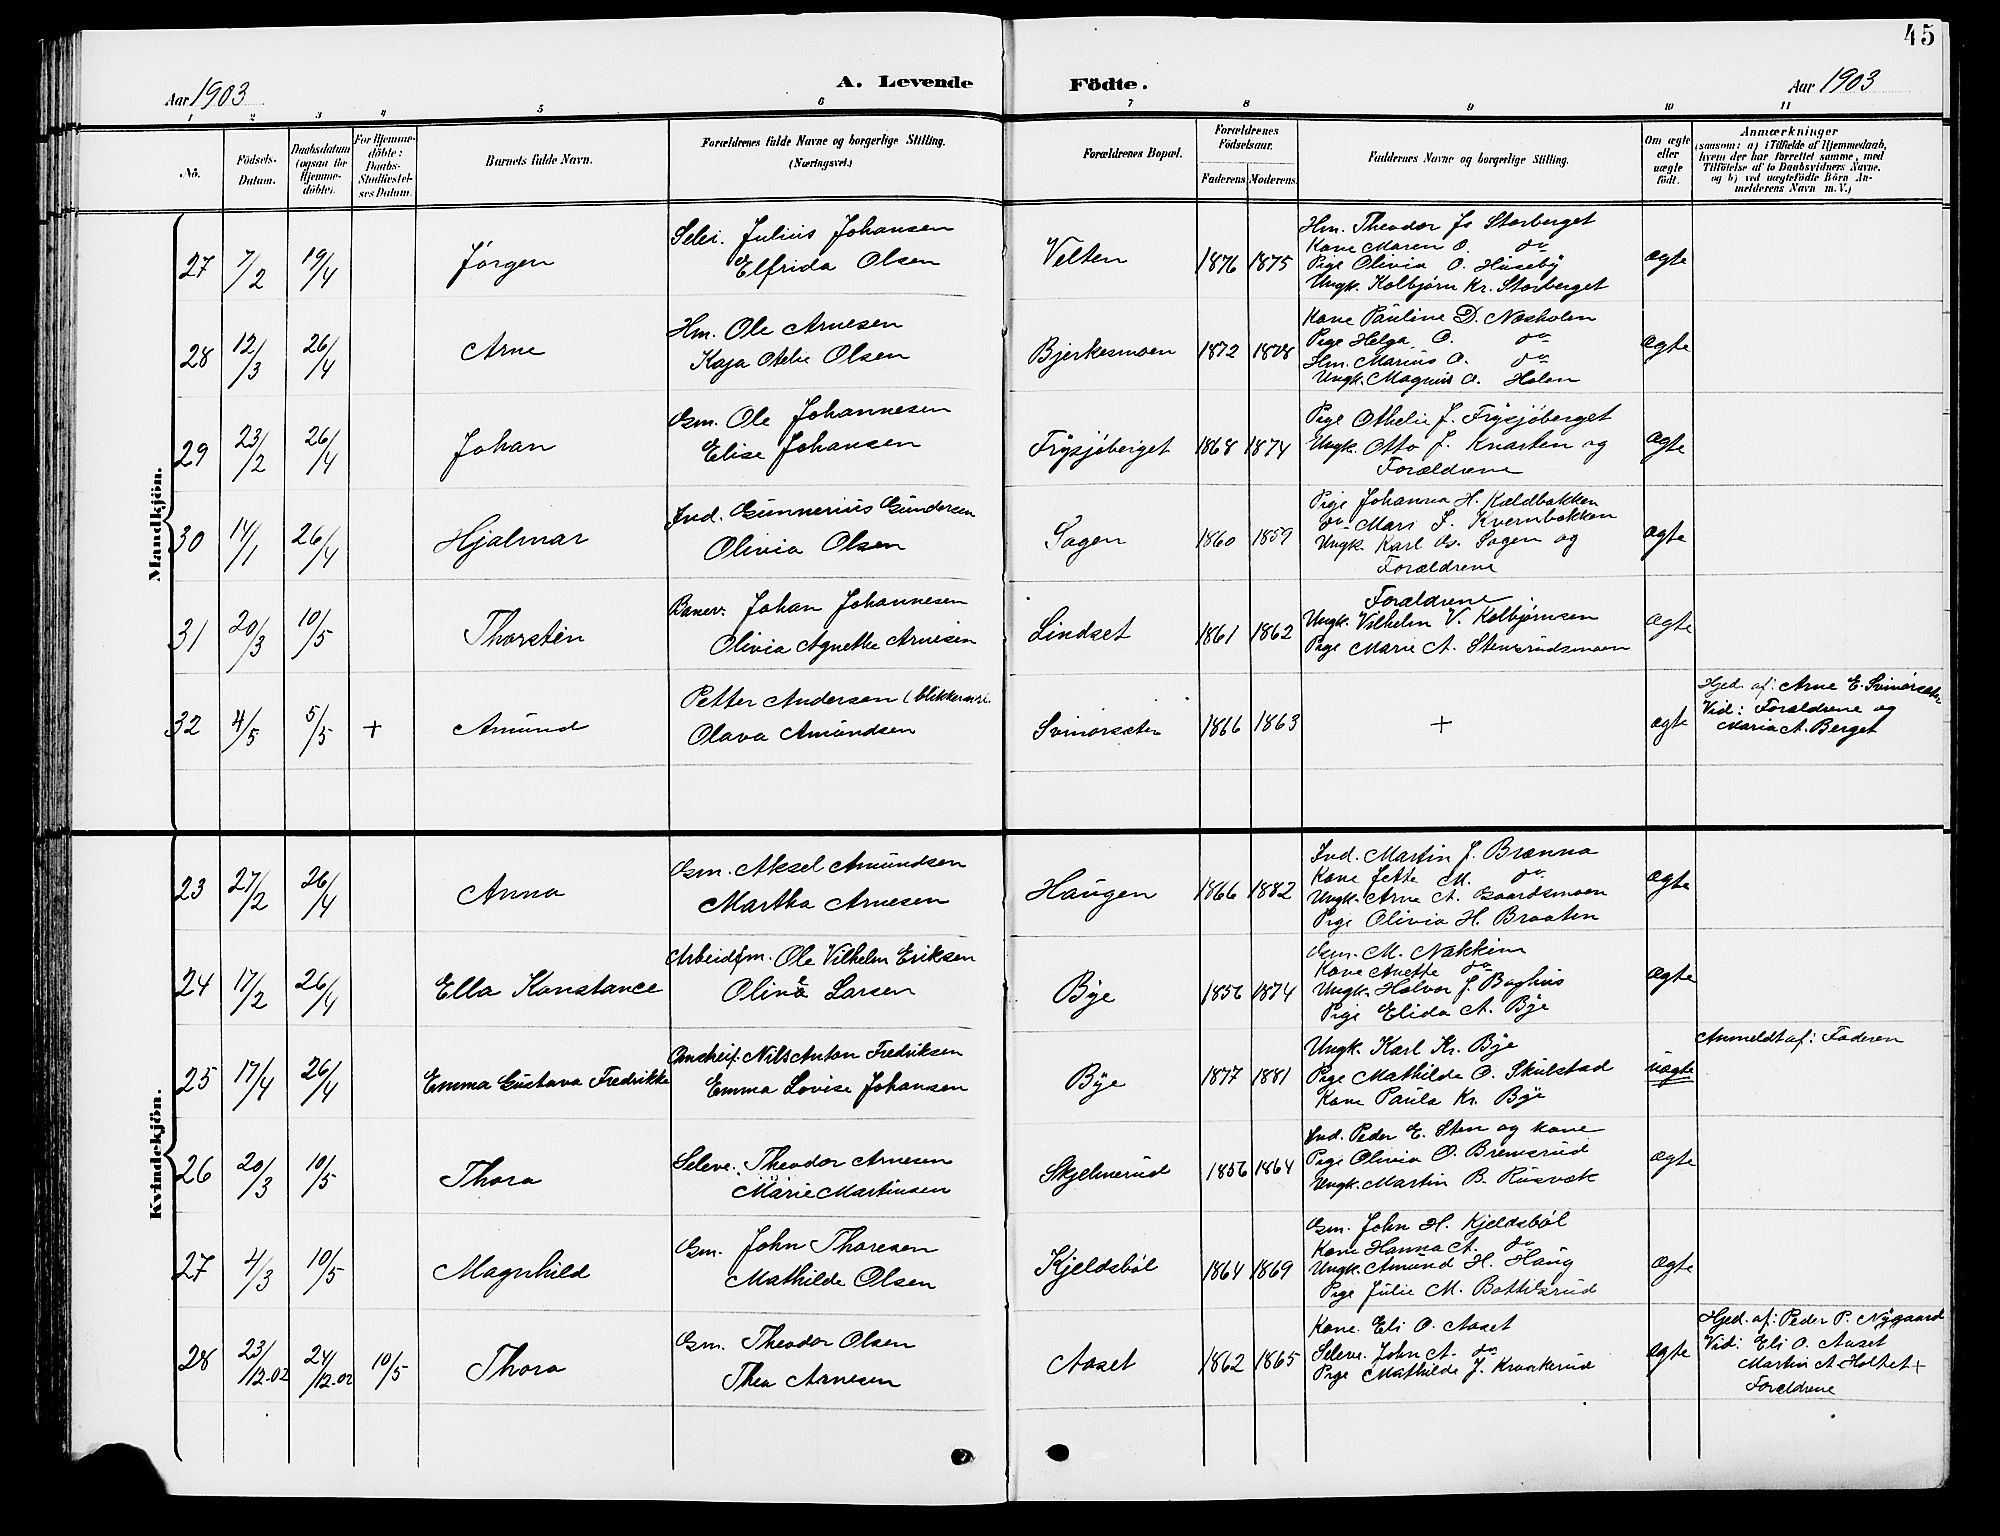 45
Aar 1903 A. Levende Födte. Aar 1903
1 2 3 4 5 6 7 8 9 10 11
Nō. Födsels-Datum. Daabsdatum (ogsaa for Hjemme-döbte). For Hjemme-döbte: Daabs-Stadfæstel-ses Datum. Barnets fulde Navn. Forældrenes fulde Navne og borgerlige Stilling. (Næringsvei.) Forældrenes Bopæl. Forældrenes Födselsaar. Faderens Moderens. Faddernes Navne og borgerlige Stilling. Om ægte eller uægte födt. Anmærkninger (saasom: a) i Tilfælde af Hjemmedaab, hvem der har forrettet samme, med Tilföielse af to Daabsvidners Navne, og b) ved uægtefödte Börn An-melderens Navn m. V.)
Mandkjön.
27 7/2 19/4 Jörgen Selei. Julius Johansen
Elfrida Olsen
Velten 1876 1875 Hm. Theodor Js Storberget
Kone Maren O. do
Pige Olivia O. Huseby
Ungk. Kolbjörn Kr. Storberget
ægte
28 12/3 26/4 Arne Hm. Ole Arnesen
Kaja Otelie Olsen
Bjerkesmoen 1872 1878 Kone Pauline D. Næsholen
Pige Helga O. do
Hm. Marius O. do
Ungk. Magnus O. Holen
ægte
29 23/2 26/4 Johan Gm. Ole Johannesen
Elise Johansen
Frysjöberget 1868 1874 Pige Othelie J. Frysjöberget
Ungk. Otto J. Knarten og
Forældrene
ægte
30 14/1 26/4 Hjalmar Ind. Gunnerius Gundersen
Olivia Olsen
Sagen 1860 1859 Pige Johanna H. Kældbakken
do Mari S. Kvernbakken
Ungk. Karl G. Sagen og
Forældrene
ægte
31 20/3 10/5 Thorstein Banev. Johan Johannesen
Olivia Agnethe Arnesen
Lindset 1861 1862 Forældrene
Ungk. Vilhelm V. Kolbjørnsen
Pige Marie A. Stensrudsmoen
ægte
32 4/5 5/5 + Amund Petter Andersen (blikkensl.
Olava Amundsen
Svinørsæter 1866 1863 + ægte Hjed. af: Arne E. Svinørsæter
Vid: Forældrene og
Maria A. Berget
Kvindekjön.
23 27/2 26/4 Anna Gm. Aksel Amundsen
Martha Arnesen
Haugen 1866 1882 Ind. Martin J. Brænna
Kone Jette M. do
Ungk. Arne A. Gaardsmoen
Pige Olivia H. Braaten
ægte
24 17/2 26/4 Ella Konstance Arbeidsm. Ole Vilhelm Eriksen
Oline Larsen
Bye 1856 1874 Gm. M. Nakkim
Kone Anette do
Ungk. Halvor J. Baghus
Pige Elida A. Bye
ægte
25 17/4 26/4 Emma Gustava Fredrikke Nils Anton Fredriksen
Emma Lovise Johansen
Bye 1877 1881 Ungk. Karl Kr. Bye
Pige Mathilde O. Skulstad
Kone Paula Kr. Bye
uægte Anmeldt af: Faderen
26 20/3 10/5 Thora Seleve. Theodor Arnesen
Marie Martinsen
Skjelmerud 1856 1864 Ind. Peder E. Sten og kone
Pige Olivia O. Bremsrud
Ungk. Martin B. Rusvæk
ægte
27 4/3 10/5 Magnhild Gm. John Thoresen
Mathilde Olsen
Kjeldsböl 1864 1869 Gm. John H. Kjeldsböl
Kone Hanna A. do
Ungk. Amund H. Haug
Pige Julie M. Bottilsrud
ægte
28 23/12-02 24/12-02 10/5 Thora Gm. Theodor Olsen
Thea Arnesen
Aaset 1862 1865 Kone Eli O. Aaset
Seleve. John A. do
Pige Mathilde J. Kraakerud
ægte Hjed. af: Peder P. Nygaard
Vid: Eli O. Aaset
Martin A. Holtet +
Forældrene